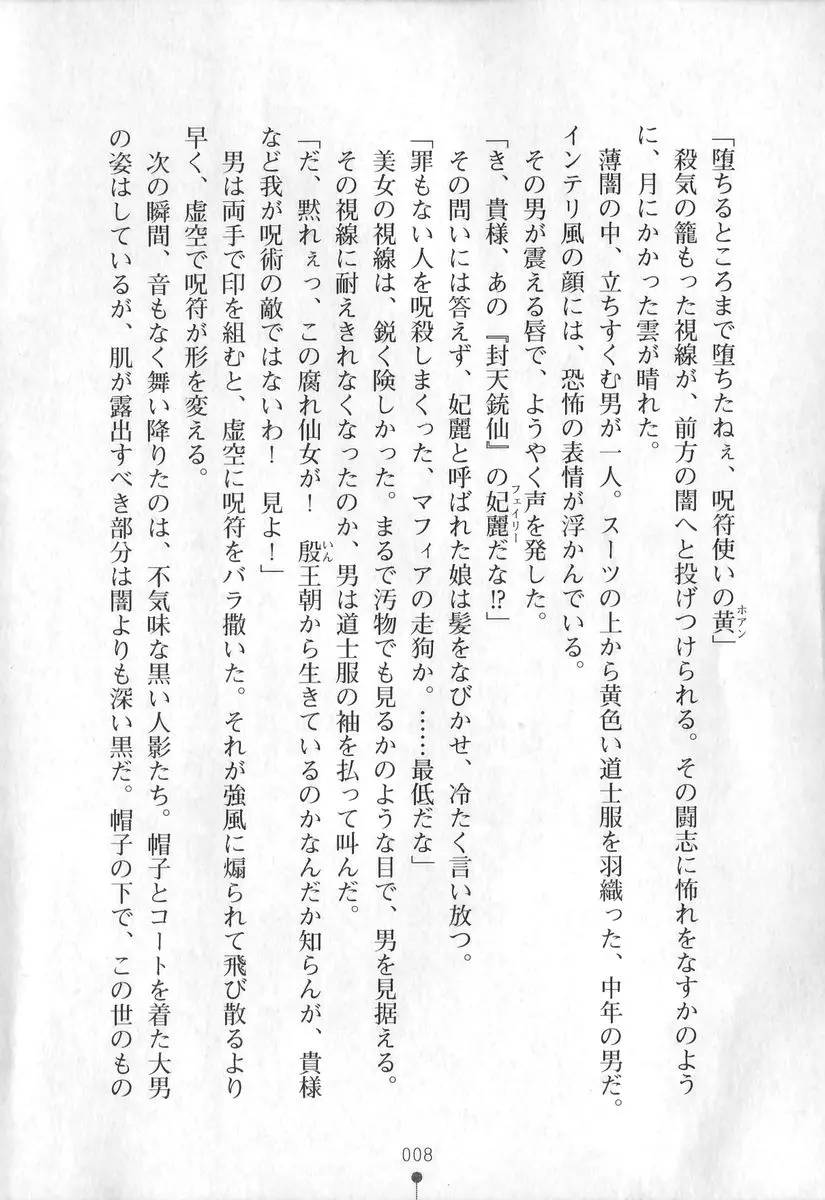 「堕ちるところまで堕ちたねぇ、呪符使いの黄」
ホアン
殺気の籠もった視線が、前方の闇へと投げつけられる。その闘志に怖れをなすかのよう
に、月にかかった雲が晴れた。
薄闇の中、立ちすくむ男が一人。スーツの上から黄色い道士服を羽織った、中年の男だ。
インテリ風の顔には、恐怖の表情が浮かんでいる。
その男が震える唇で、ようやく声を発した。
「き、貴様、あの『封天銃仙』の妃麗だな!?」
フェイリー
その問いには答えず、妃麗と呼ばれた娘は髪をなびかせ、冷たく言い放つ。
「罪もない人を呪殺しまくった、マフィアの走狗か。……最低だな」
美女の視線は、鋭く険しかった。まるで汚物でも見るかのような目で、男を見据える。
その視線に耐えきれなくなったのか、男は道士服の袖を払って叫んだ。
「だ、黙れぇっ、この腐れ仙女が！　殷王朝から生きているのかなんだか知らんが、貴様
いん
など我が呪術の敵ではないわ！　見よ！」
男は両手で印を組むと、虚空に呪符をバラ撒いた。それが強風に煽られて飛び散るより
早く、虚空で呪符が形を変える。
次の瞬間、音もなく舞い降りたのは、不気味な黒い人影たち。帽子とコートを着た大男
の姿はしているが、肌が露出すべき部分は闇よりも深い黒だ。帽子の下で、この世のもの
008